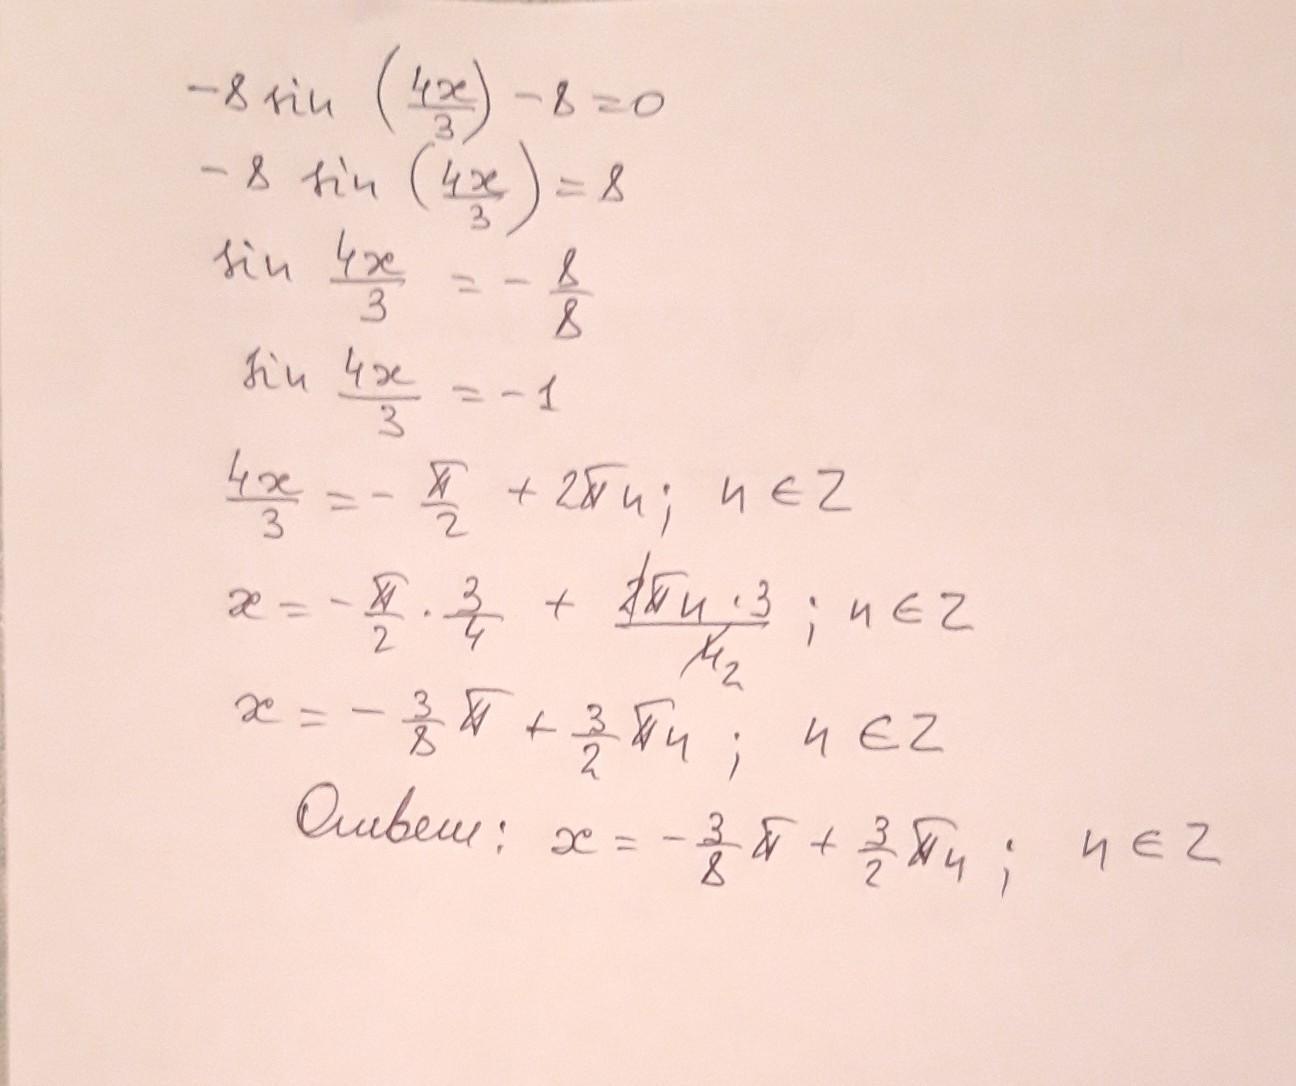 -8 sin (4x/3) - 8 = 0
-8 sin (4x/3) = 8
sin 4x/3 = - 8/8
sin 4x/3 = -1
4x/3 = - π/2 + 2πn; n ∈ Z
x = - π/2 · 3/4 + 2πn · 3/4 2; n ∈ Z
x = - 3/8 π + 3/2 πn; n ∈ Z
Ответ: x = - 3/8 π + 3/2 πn; n ∈ Z